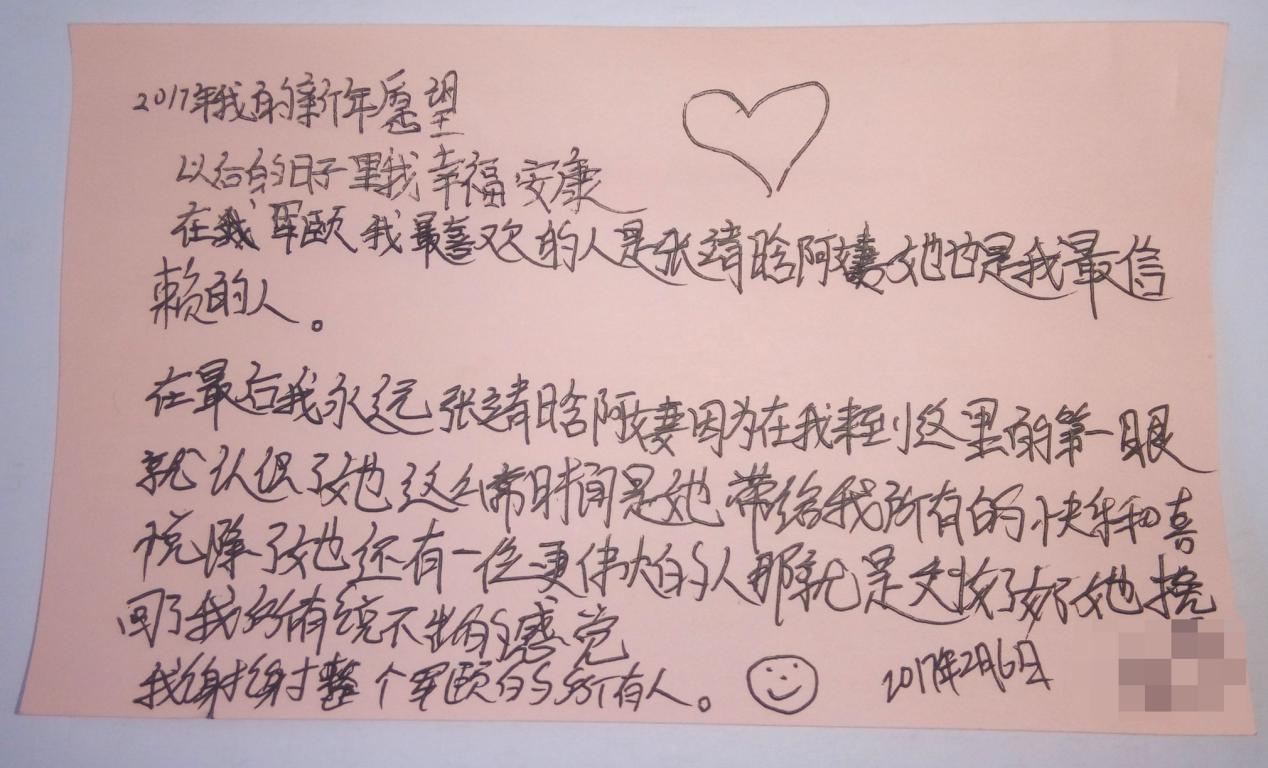 2017年我的新年愿望
以后的日子里我幸福安康
在我军颐我最喜欢的人是张靖晗阿姨她也是我最信
赖的人。
在最后我永远张靖晗阿姨因为在我来到这里的第一眼
就认识了她这么常时间是她带给我所有的快乐和喜
悦除了她还有一位更伟大的人那就是
回了我所有说不出的感觉
我谢谢整个军颐的所有人。
2017年2月6日